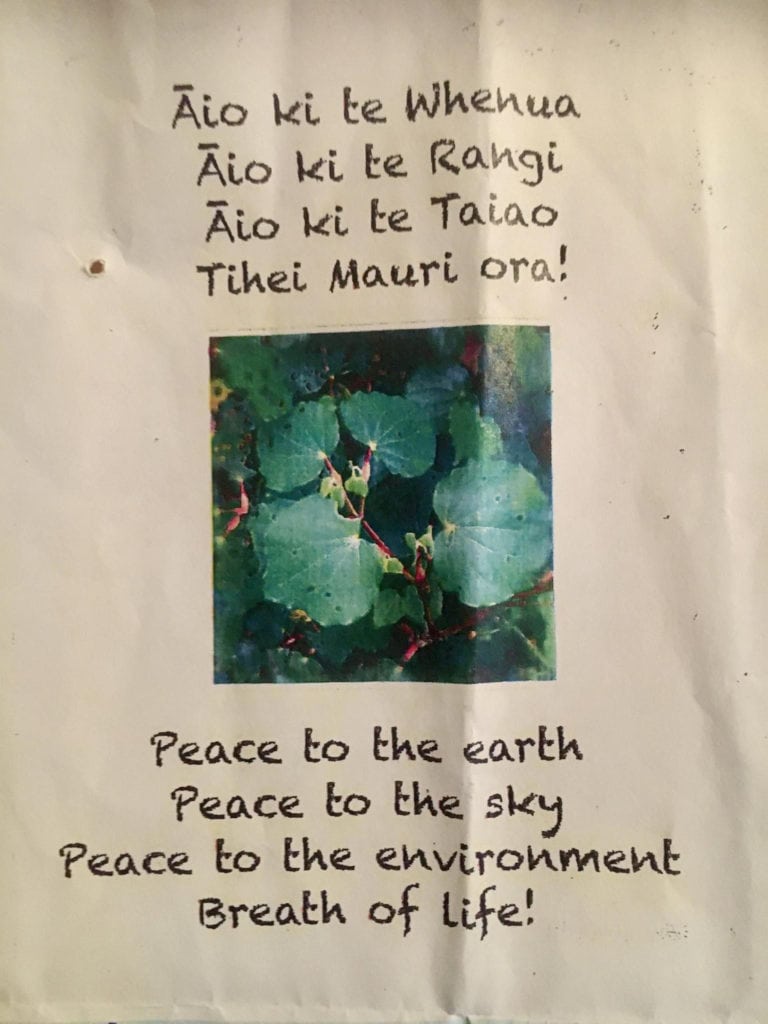 Āio ki te Whenua
Āio ki te Rangi
Āio ki te Taiao
Tihei Mauri ora!
Peace to the earth
Peace to the sky
Peace to the environment
Breath of life!